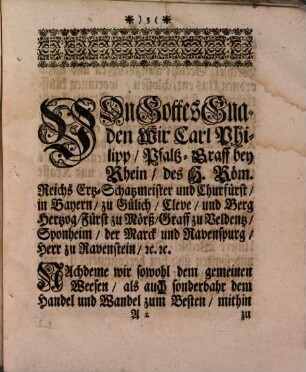 * ) 3 ( *
VOn Gottes Gna-
den Wir Carl Phi-
lipp / Pfaltz-Graff bey
Rhein / des H. Röm.
Reichs Ertz-Schatzmeister und Churfürst /
in Bayern / zu Gülich / Cleve / und Berg
Hertzog / Fürst zu Mörß / Graff zu Veldentz /
Sponheim / der Marck und Ravenspurg /
Herr zu Ravenstein / ꝛc. ꝛc.
NAchdeme wir sowohl dem gemeinen
Weesen / als auch sonderbahr dem
Handel und Wandel zum Besten / mithin
A 2 zu